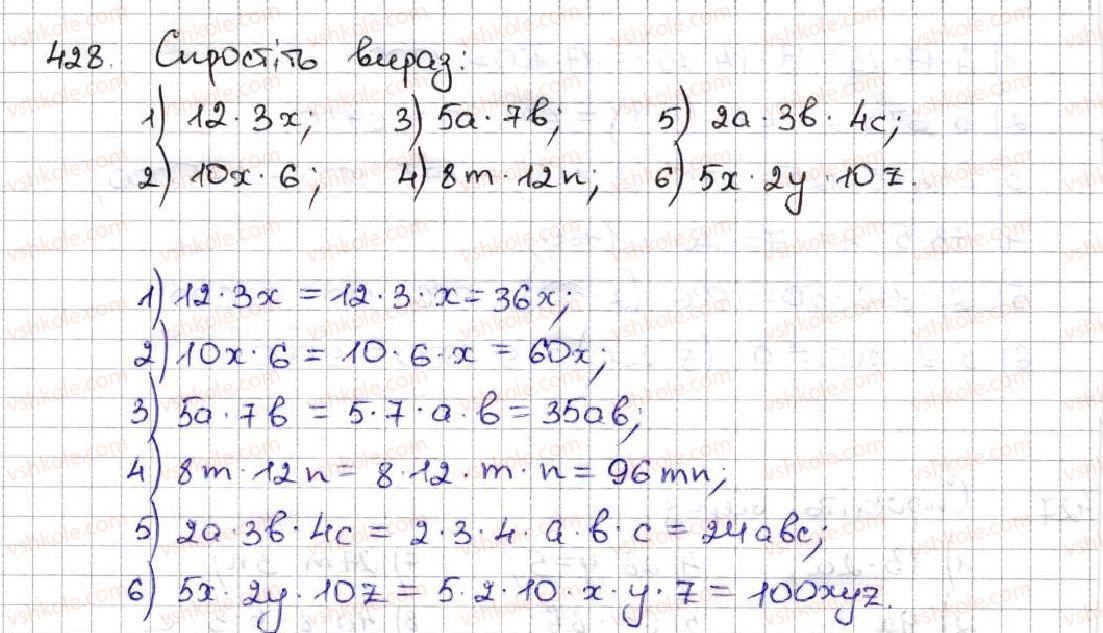 428. Спростіть вираз:
1) 12·3x; 3) 5a·7b; 5) 2a·3b·4c;
2) 10x·6; 4) 8m·12n; 6) 5x·2y·10z.
1) 12·3x = 12·3·x = 36x;
2) 10x·6 = 10·6·x = 60x;
3) 5a·7b = 5·7·a·b = 35ab;
4) 8m·12n = 8·12·m·n = 96mn;
5) 2a·3b·4c = 2·3·4·a·b·c = 24abc;
6) 5x·2y·10z = 5·2·10·x·y·z = 100xyz.